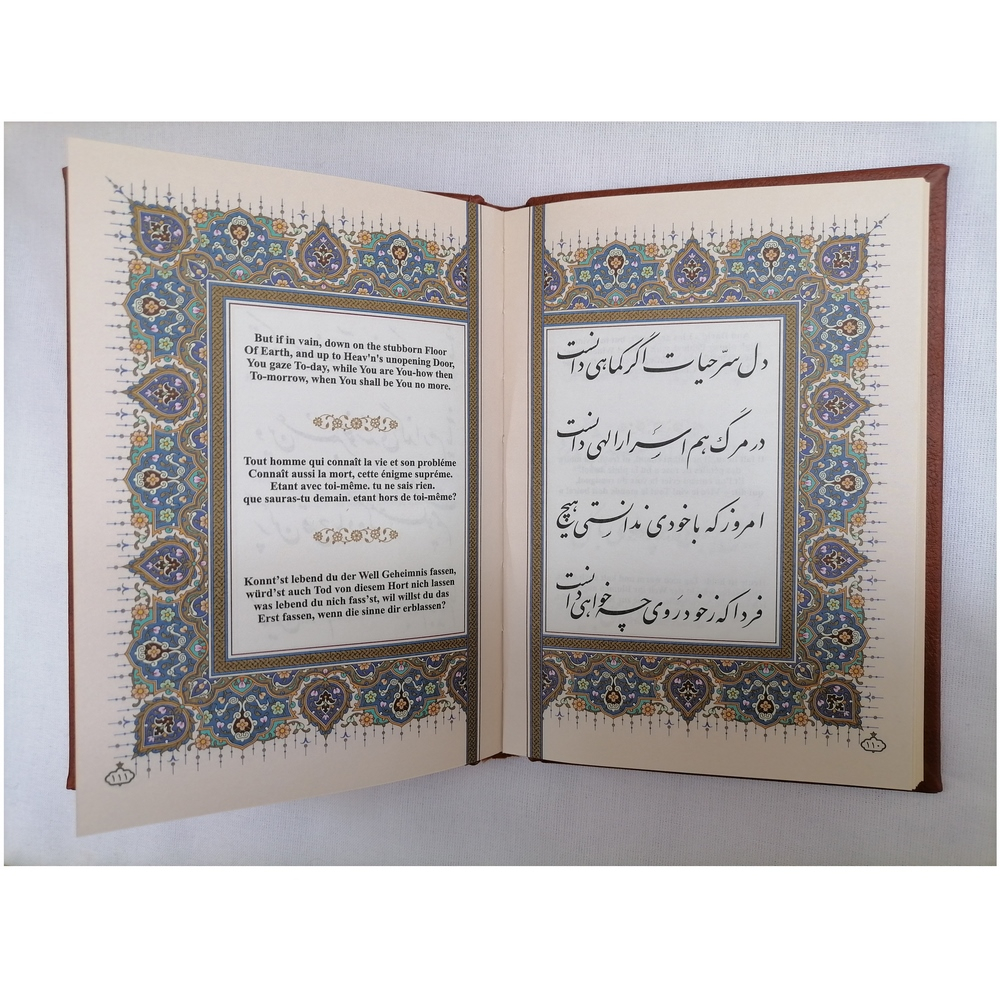 دل سرّ حیات اگر کماهی دانست
در مرگ هم اسرار الهی دانست
امروز که با خودی ندانستی هیچ
فردا که ز خود رَوی چه خواهی دانست
١١٠
But if in vain, down on the stubborn Floor
Of Earth, and up to Heav'n's unopening Door,
You gaze To-day, while You are You-how then
To-morrow, when You shall be You no more.
Tout homme qui connaît la vie et son probléme
Connaît aussi la mort, cette énigme supréme.
Etant avec toi-même. tu ne sais rien.
que sauras-tu demain. etant hors de toi-même?
Konnt'st lebend du der Well Geheimnis fassen,
würd'st auch Tod von diesem Hort nich lassen
was lebend du nich fass'st, wil willst du das
Erst fassen, wenn die sinne dir erblassen?
١١١